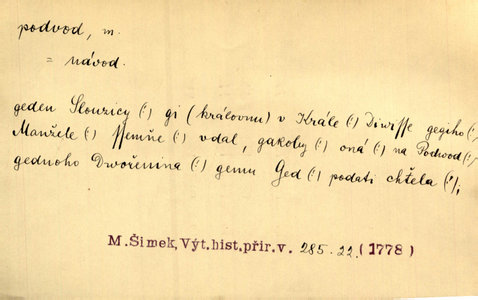 podvod, m.
= návod.
geden Slouzicy (!) gi (královnu) v Krále (!) Diwisse gegiho (!)
Manžele (!) ssemňe (!) vdal, gakoby (!) oná (!) na Podwod (!)
gednoho Dwořenina (!) gemu Ged (!) podati chtěla (!);
M. Šimek, Výt. hist. přír. v. 285. 22. (1778)